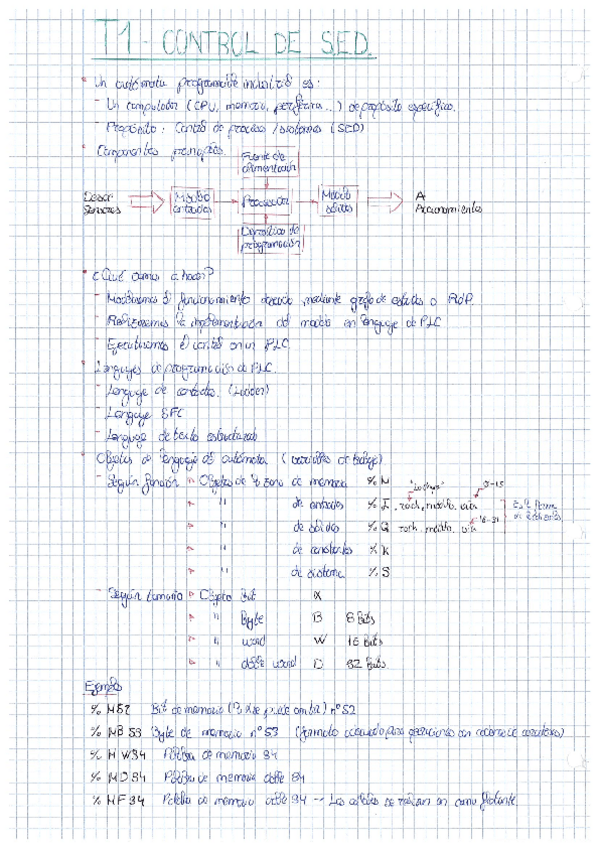 T1 - CONTROL DE S.E.D.
Un autómata programable industrial es:
- Un computador (CPU, memoria, periferia...) de propósito específico.
- Propósito: Control de procesos / sistemas (SED)
Componentes principales
Fuente de alimentación
Desde Sensores
Módulo entradas
Procesador
Módulo salidas
A Accionamientos
Dispositivo de programación
¿Qué vamos a hacer?
- Modelaremos el funcionamiento deseado mediante grafo de estados o RdP
- Realizaremos la implementación del modelo en lenguaje de PLC
- Ejecutaremos el control en un PLC
Lenguajes de programación de PLC.
- Lenguaje de contactos. (Ladder)
- Lenguaje SFC
- Lenguaje de texto estructurado
Objetos de lenguaje del autómata (variables de trabajo)
- Según función Objetos de la zona de memoria %M
" de entradas %I rack, modulo, via 0-15
" de salidas %Q rack, modulo, via 16-31
" de constantes %K
" de sistema %S
- Según tamaño Objeto Bit X
" Byte B 8 Bits
" word W 16 Bits
" doble word D 32 Bits
Ejemplos
%M52 Bit de memoria (la X se puede omitir) nº 52
%MB53 Byte de memoria nº 53 (formato adecuado para operaciones con cadenas de caracteres)
%MW94 Palabra de memoria 94
%MD94 Palabra de memoria doble 94
%MF94 Palabra de memoria doble 94 -- Los estados se realizan en coma flotante